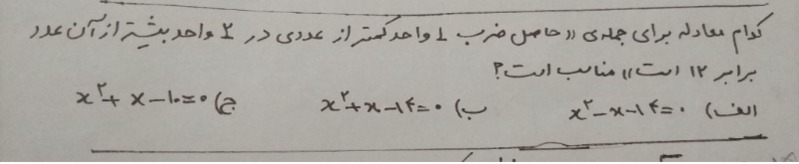 کدام معادله برای جمله‌ی «حاصل ضرب ۱ واحد کمتر از عددی در ۲ واحد بیشتر از آن عدد
برابر ۱۲ است» مناسب است؟
الف) x²-x-۱۴=۰ ب) x²+x-۱۴=۰ ج) x²+x-۱۰=۰